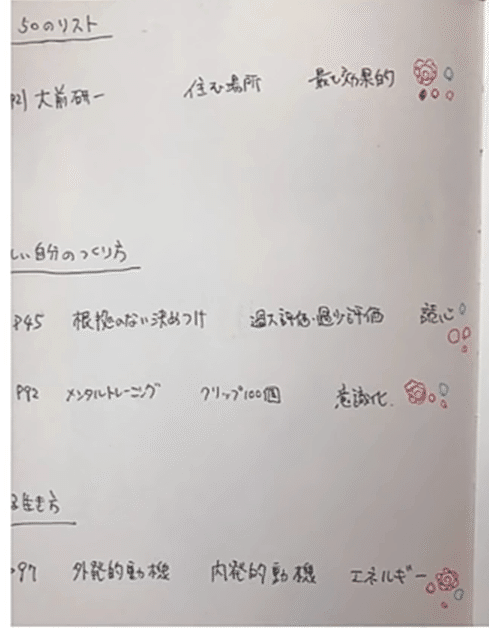 50のリスト
P21 大前研一 住む場所 最も効果的
しい自分のつくり方
P45 根拠のない決めつけ 過大評価・過少評価 慢心
P92 メンタルトレーニング クリップ100個 意識化
る生き方
P97 外発的動機 内発的動機 エネルギー